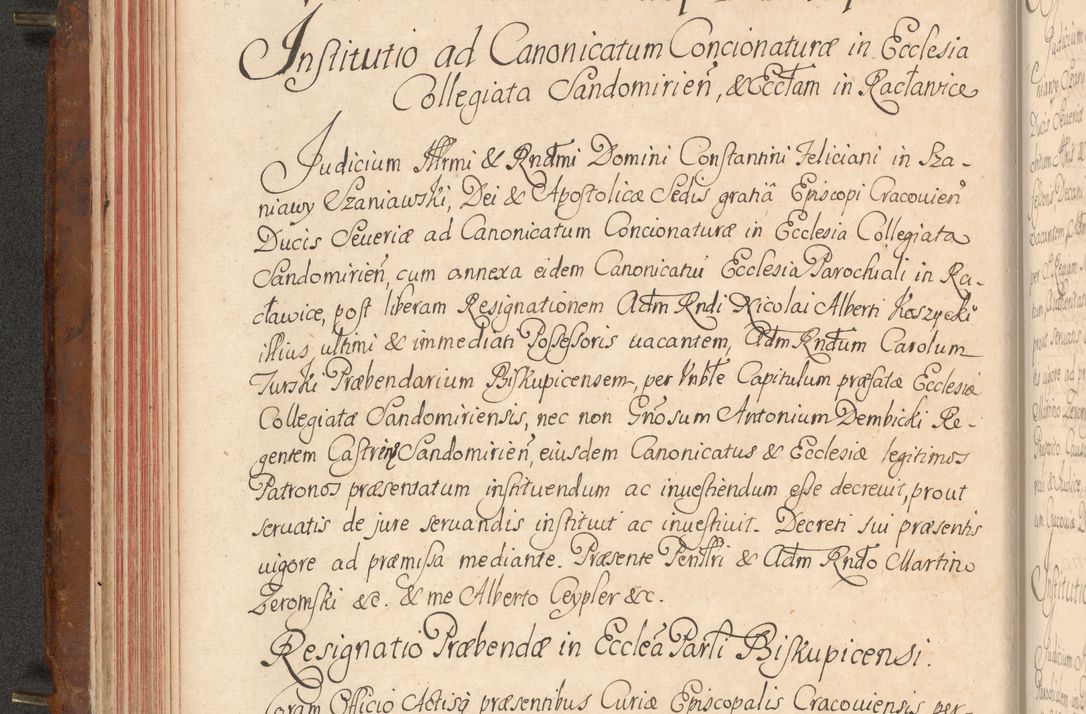 Institutio ad Canonicatum Concionaturæ in Ecclesia
Collegiata Sandomirień, & Eccłam in Racławice
Judicium Illrmi & Rndłmi Domini Constantini Feliciani in Sza-
niawy Szaniawski, Dei & Apostolicæ Sedis gratiâ Episcopi Cracovień
Ducis Severiæ ad Canonicatum Concionaturæ in Ecclesia Collegiata
Sandomirień, cum annexa eidem Canonicatui Ecclesia Parochiali in Ra-
cławice, post liberam Resignationem Adm Rndi Nicolai Alberti Koszycki
illius ultimi & immediati Possessoris uacantem, Adm Rndum Carolum
Turski Præbendarium Biskupicensem, per Vnble Capitulum præfatæ Ecclesiæ
Collegiatæ Sandomiriensis, nec non Gnosum Antonium Dembicki Re-
gentem Castrens Sandomirień, eiusdem Canonicatus & Ecclesiæ legitimos
Patronos præsentatum instituendum ac inuestiendum esse decreuit, prout
seruatis de jure seruandis instituit ac inuestiuit. Decreti sui præsentis
uigore ad præmissa mediante. Præsente Penstri & Adm Rndo Martino
Zeromski &c. & me Alberto Ceypler &c.
Resignatio Præbendæ in Ecclea Parłi Biskupicensi.
Coram Officio Actisq præsentibus Curiæ Episcopalis Cracouiensis per-